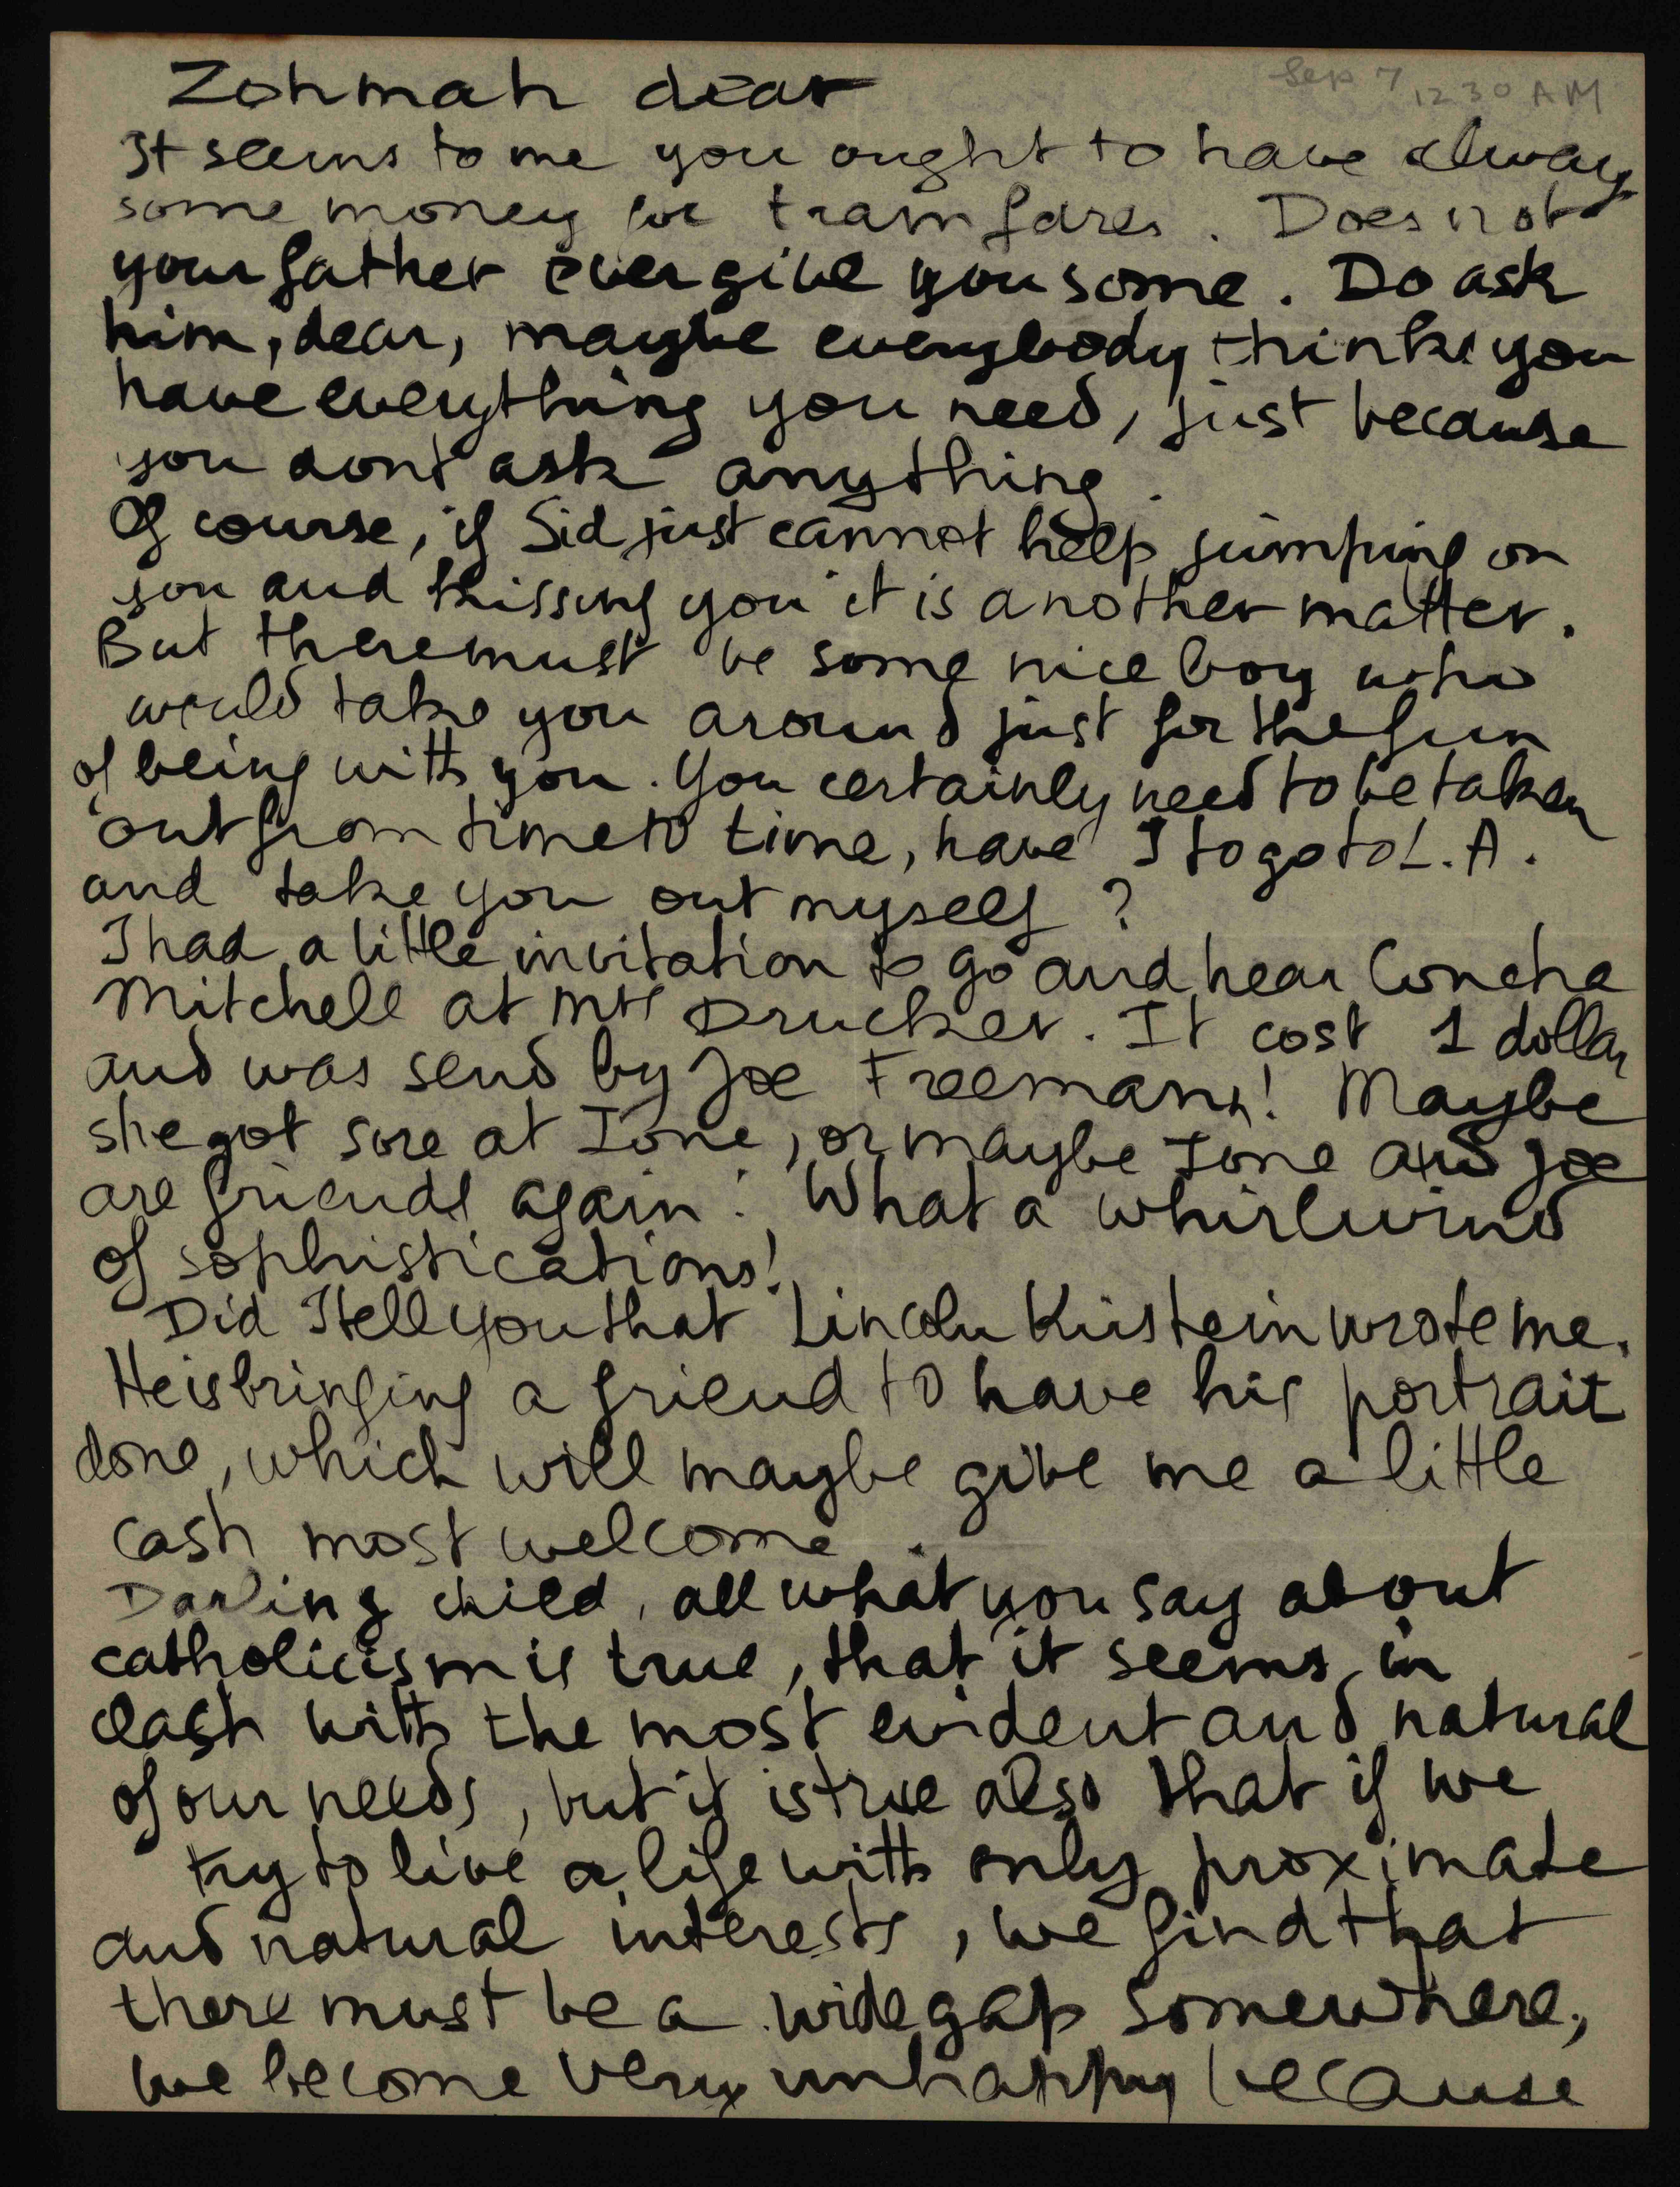 Sep 7 12 30 AM
Zohmah dear
It seems to me you ought to have always
some money for tram fares. Does not
your father ever give you some. Do ask
him, dear, maybe everybody thinks you
have everything you need, just because
you dont ask anything.
Of course, if Sid just cannot help jumping on
you and kissing you it is another matter.
But there must be some nice boy who
would take you around just for the fun
of being with you. You certainly need to be taken
out from time to time, have I to go to L.A.
and take you out myself?
I had a little invitation to go and hear Concha
Mitchell at Mrs Drucker. It cost 1 dollar
and was send by Joe Freemann! Maybe
she got sore at Ione, or maybe Ione and Joe
are friends again! What a whirlwind
of sophistications!
Did I tell you that Lincoln Kirstein wrote me.
He is bringing a friend to have his portrait
done, which will maybe give me a little
cash most welcome.
Darling child, all what you say about
catholicism is true, that it seems in
clash with the most evident and natural
of our needs, but it is true also that if we
try to live a life with only proximate
and natural interests, we find that
there must be a wide gap somewhere,
we become very unhappy because